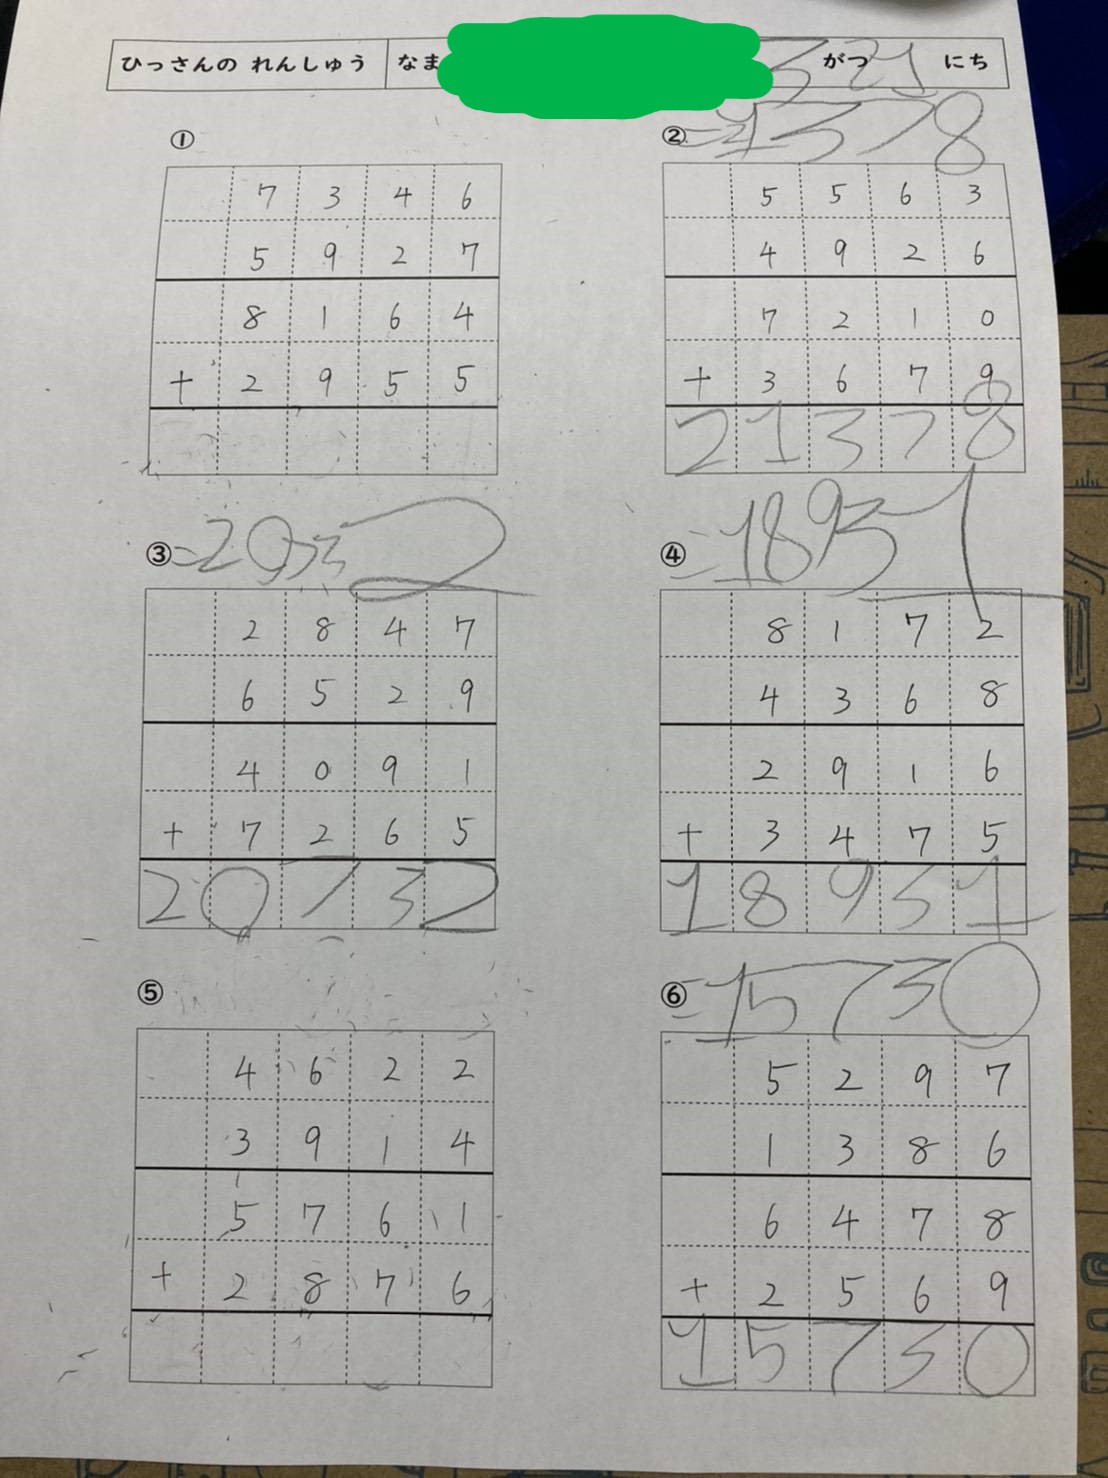 ひっさんの れんしゅう なま 3 がつ 21 にち
① ② =21378
7 3 4 6
5 9 2 7
8 1 6 4
+ 2 9 5 5
5 5 6 3
4 9 2 6
7 2 1 0
+ 3 6 7 9
2 1 3 7 8
③ =20732
2 8 4 7
6 5 2 9
4 0 9 1
+ 7 2 6 5
2 0 7 3 2
④ =18931
8 1 7 2
4 3 6 8
2 9 1 6
+ 3 4 7 5
1 8 9 3 1
⑤
4 6 2 2
3 9 1 4
5 7 6 1
+ 2 8 7 6
⑥ =15730
5 2 9 7
1 3 8 6
6 4 7 8
+ 2 5 6 9
1 5 7 3 0